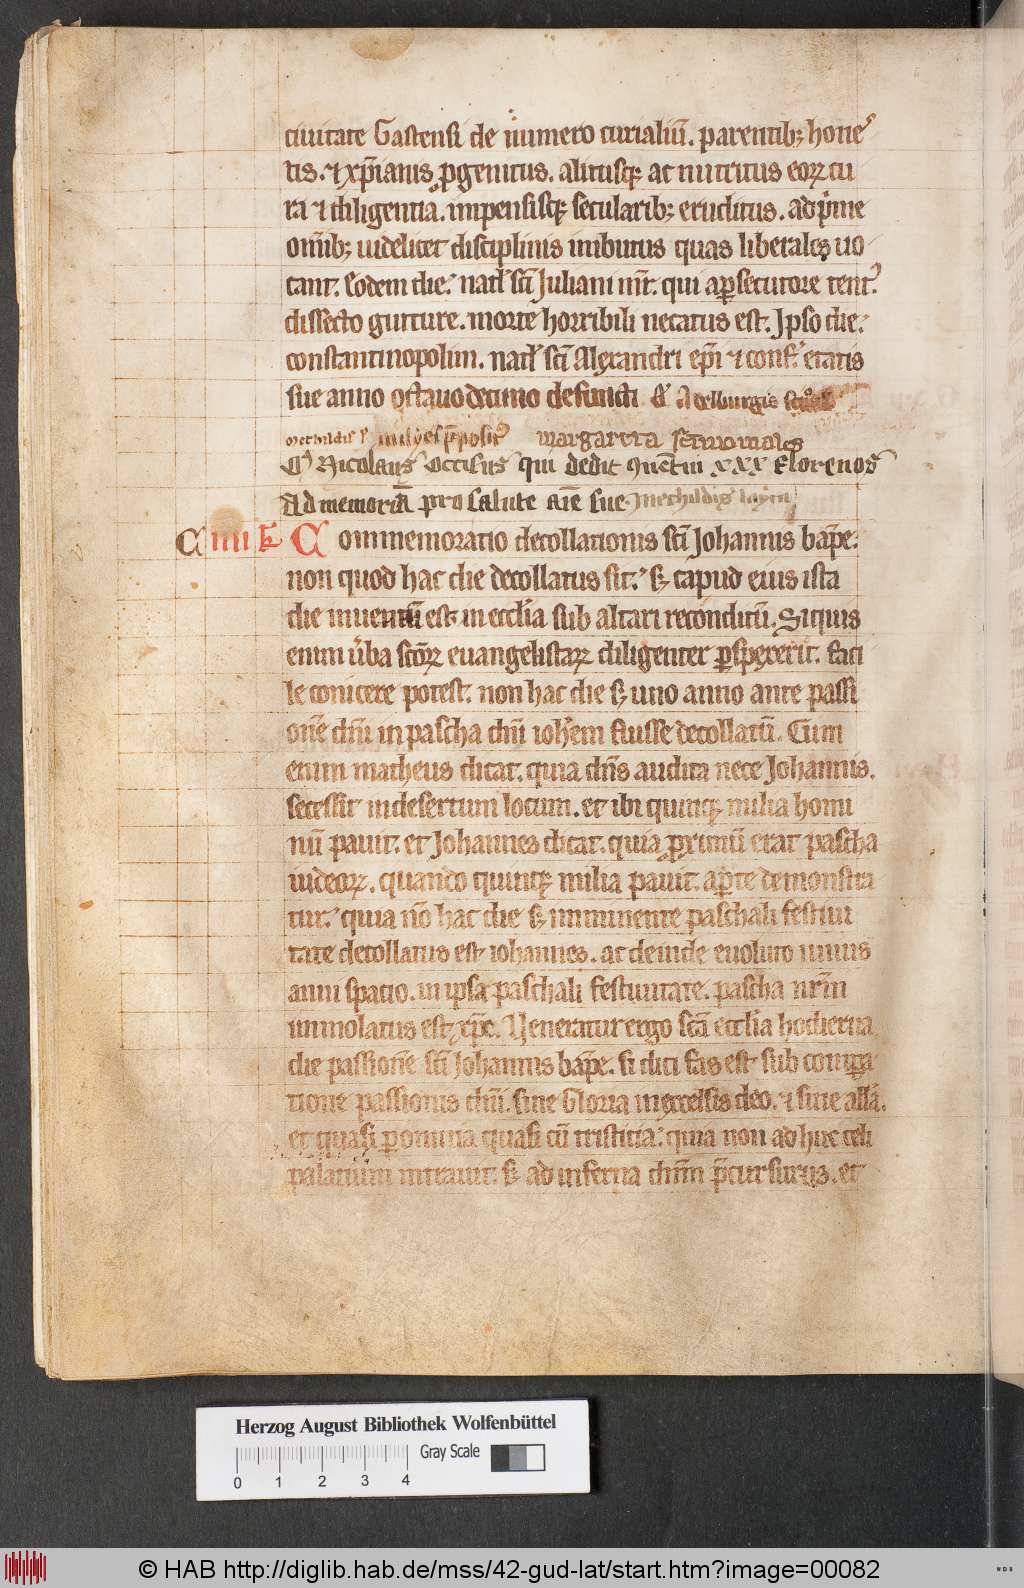 ciuitate Gastensi de numero curialiū. parentib; hones
tis. ⁊ xp̄ianis ꝓgenitus. alitusq; ac nutritus eoꝝ cu
ra ⁊ diligentia. impensisq; secularib; eruditus. ad p̄me
om̄ib; uidelicet disciplinis inbutus quas liberales uo
cant. Eodem die. nat̄ sc̄i Juliani mr̄. qui a ꝑsecutore tent᷒.
dissecto gutture. morte horribili necatus est. Ipso die.
constantinopolim. nat̄ sc̄i Alexandri ep̄i ⁊ conf. etatis
sue anno octauodecimo defuncti Adelburgis
mechildis margareta sc̄imonales
Nicolaus Occisus qui dedit xxx florenos
Ad memoriā pro salute aīe sue. mechildis
C iiii k̄ Commemoratio decollationis sc̄i Johannis bap̄e.
non quod hac die decollatus sit. sꝫ capud eius ista
die inuentū est. in eccl̄ia sub altari reconditū. Siquis
enim ūba sc̄oꝝ euangelistaꝝ diligenter ꝑspexerit. faci
le conicere potest. non hac die sꝫ uno anno ante passi
onē dn̄i in pascha dn̄i ioh̄em fuisse decollatū. Cum
enim matheus dicat. quia dn̄s audita nece Johannis.
secessit in desertum locum. et ibi quinq; milia homi
nū pauit. et Johannes dicat. quia ꝓximū erat pascha
iudeoꝝ. quando quinq; milia pauit. aꝑte demonstra
tur. quia nō hac die sꝫ imminente paschali festiui
tate decollatus est iohannes. ac deinde euoluto unius
anni spatio. in ipsa paschali festiuitate. pascha nr̄m
immolatus est xp̄c. Veneratur ergo sc̄a eccl̄ia hodierna
die passionē sc̄i Johannis bap̄e. si dici fas est sub compa
tione passionis dn̄i. sine Gloria in excelsis deo. ⁊ sine all̄a.
et quasi ꝑ omnia quasi cū tristicia. quia non adhuc celi
palatium intrauit. sꝫ ad inferna dn̄m p̄cursurus. et
Herzog August Bibliothek Wolfenbüttel
Gray Scale
0 1 2 3 4
© HAB http://diglib.hab.de/mss/42-gud-lat/start.htm?image=00082